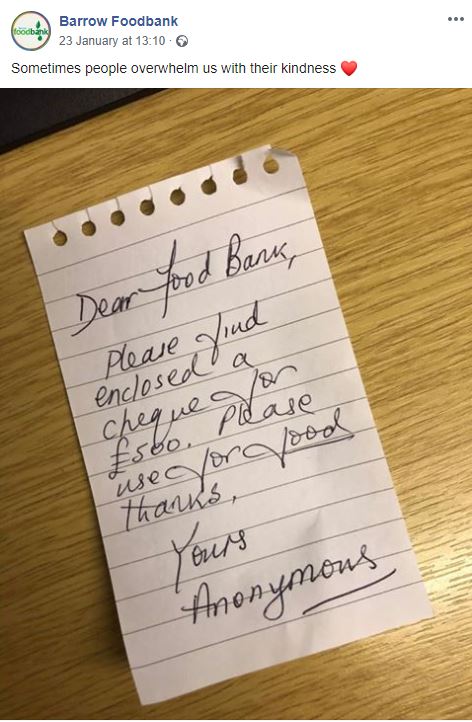 foodbank
Barrow Foodbank
23 January at 13:10 ·
Sometimes people overwhelm us with their kindness ❤️
Dear Food Bank,
Please find
enclosed a
cheque for
£500. Please
use for food
thanks,
Yours
Anonymous